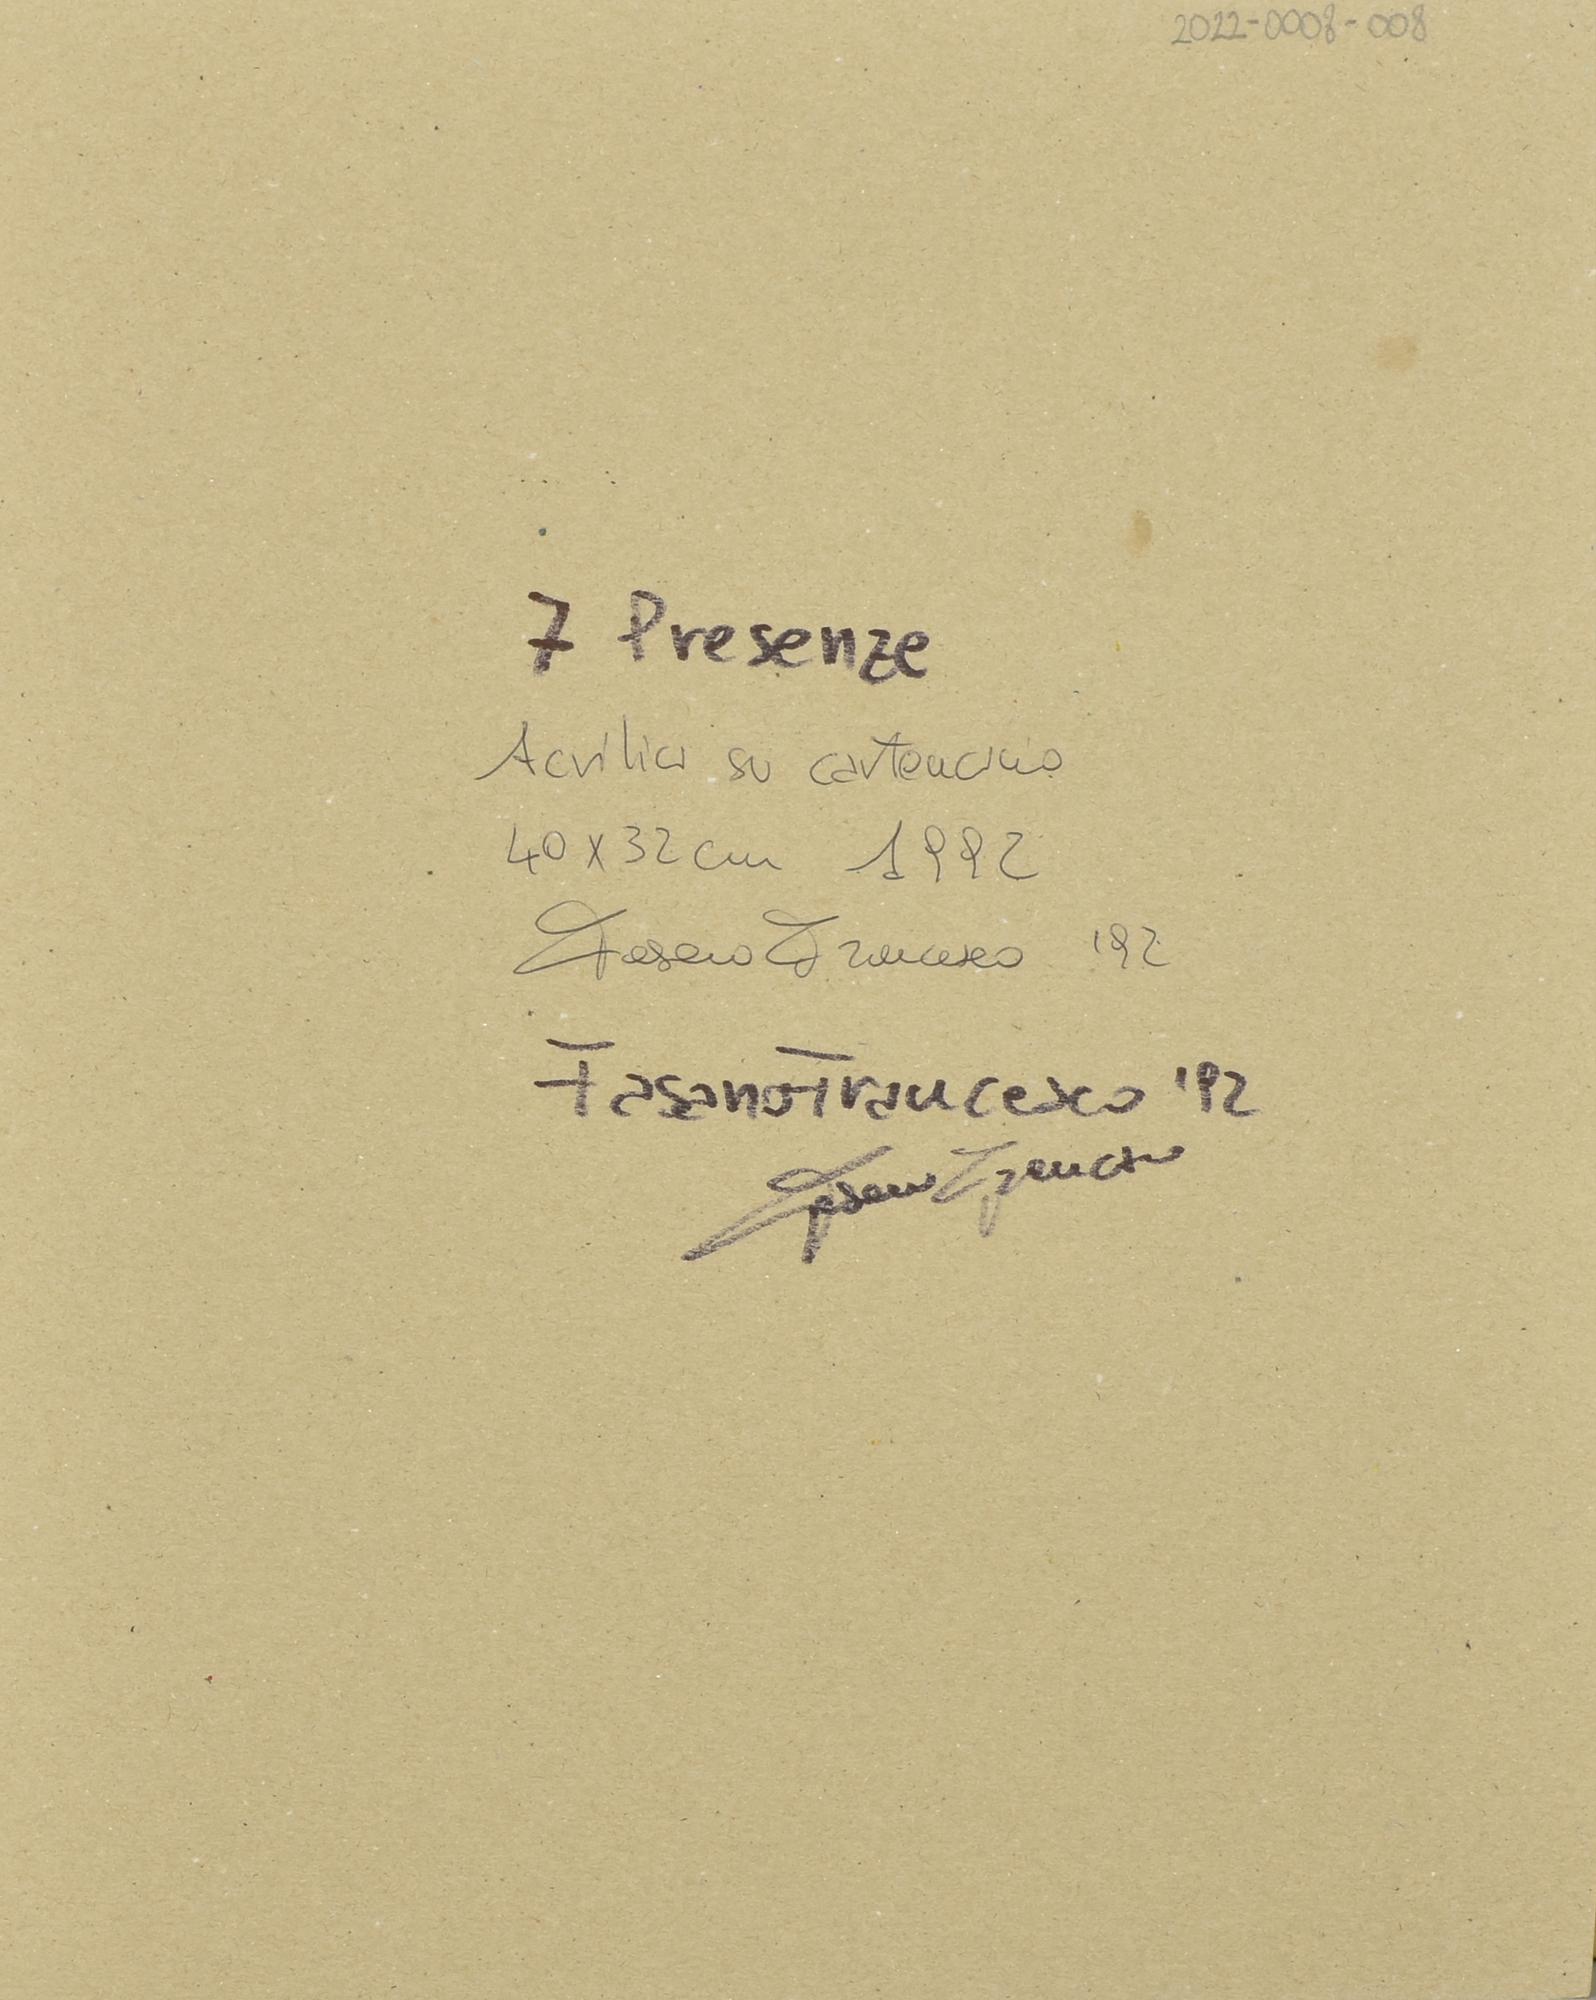 2022-0008-008
7 Presenze
Acrilici su cartoncino
40x32cm 1992
Fasano Francesco '92
Fasano Francesco '92
Fasano Francesco